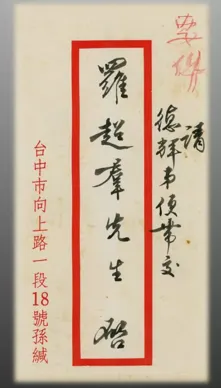 要件
請
德輝弟便帶交
羅超羣先生啓
台中市向上路一段18號孫緘